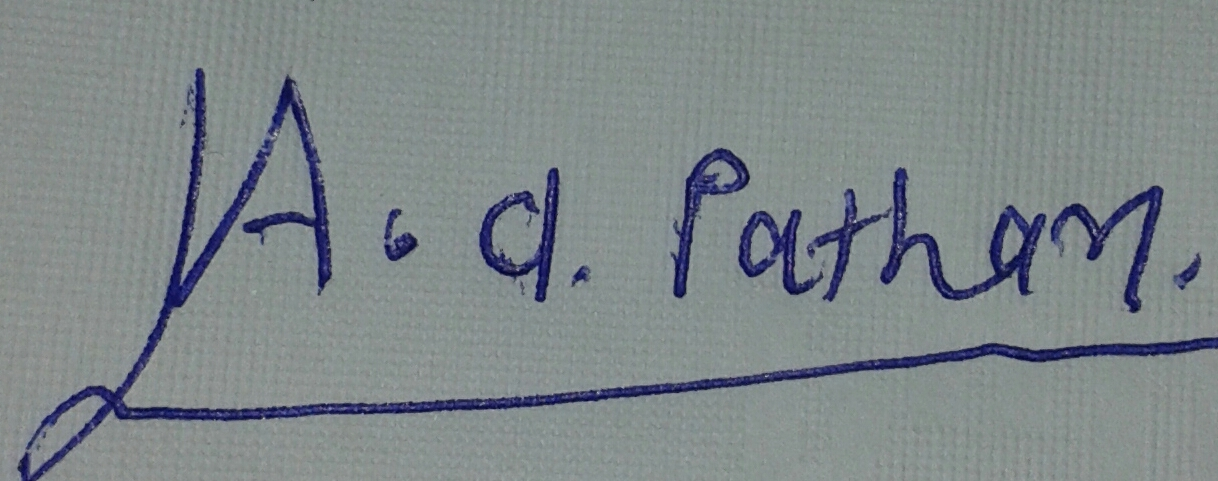 A. a. Pathan.